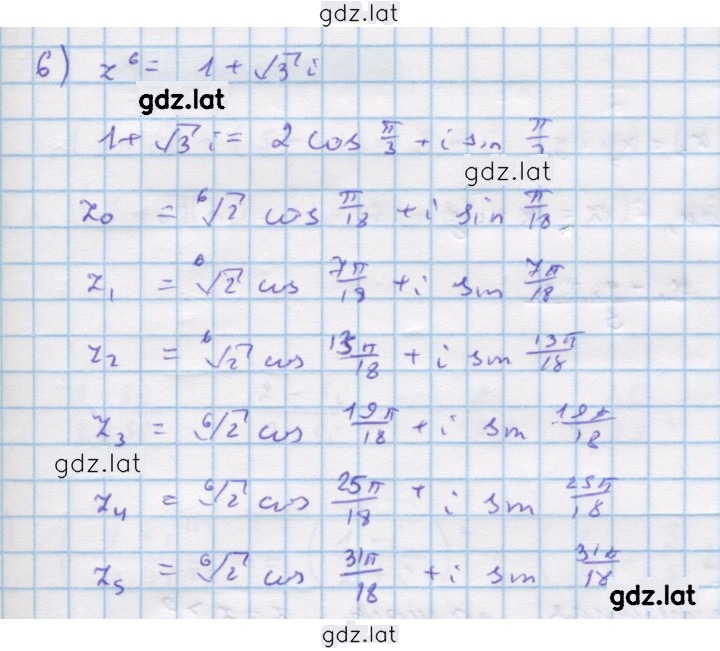 gdz.lat
6) z⁶ = 1 + √3 i
gdz.lat
1 + √3 i = 2 cos π/3 + i sin π/3
gdz.lat
z₀ = ⁶√2 cos π/18 + i sin π/18
z₁ = ⁶√2 cos 7π/18 + i sin 7π/18
z₂ = ⁶√2 cos 13π/18 + i sin 13π/18
z₃ = ⁶√2 cos 19π/18 + i sin 19π/18
gdz.lat
z₄ = ⁶√2 cos 25π/18 + i sin 25π/18
z₅ = ⁶√2 cos 31π/18 + i sin 31π/18
gdz.lat
gdz.lat